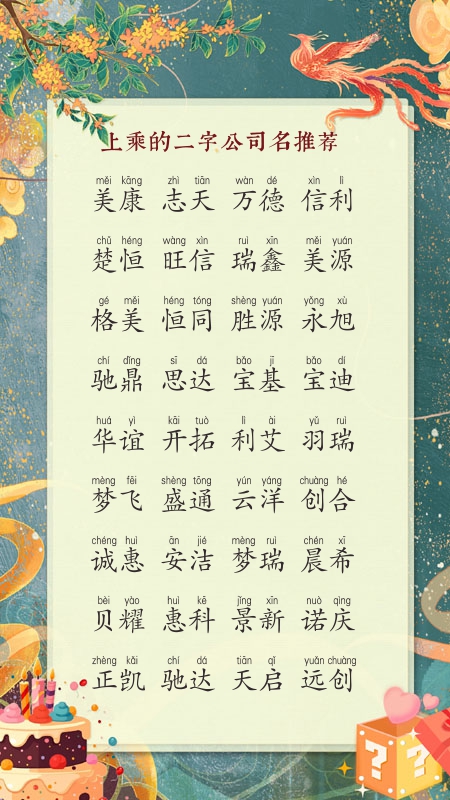 上乘的二字公司名推荐
měi kāng zhì tiān wàn dé xìn lì
美康 志天 万德 信利
chǔ héng wàng xìn ruì xīn měi yuán
楚恒 旺信 瑞鑫 美源
gé měi héng tóng shèng yuán yǒng xù
格美 恒同 胜源 永旭
chí dǐng sī dá bǎo jī bǎo dí
驰鼎 思达 宝基 宝迪
huá yì kāi tuò lì ài yǔ ruì
华谊 开拓 利艾 羽瑞
mèng fēi shèng tōng yún yáng chuàng hé
梦飞 盛通 云洋 创合
chéng huì ān jié mèng ruì chén xī
诚惠 安洁 梦瑞 晨希
bèi yào huì kē jǐng xīn nuò qìng
贝耀 惠科 景新 诺庆
zhèng kǎi chí dá tiān qǐ yuǎn chuàng
正凯 驰达 天启 远创
? ?